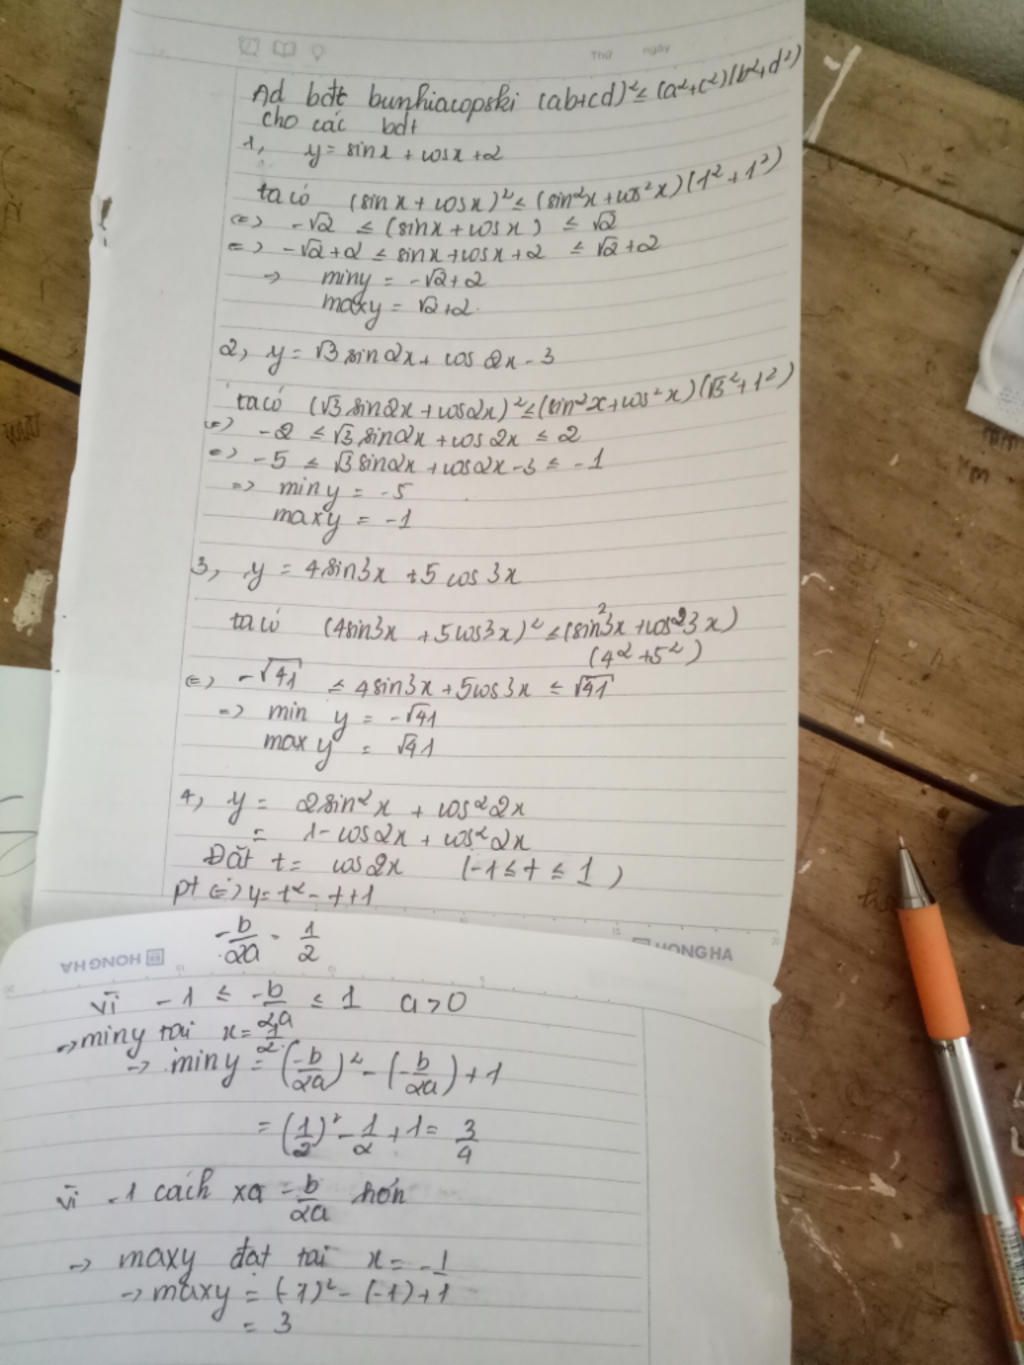 Thứ ngày
Ad bđt bunhiacopski (ab+cd)² ≤ (a²+c²)(b²+d²)
cho các bdt
1, y = sinx + cosx + 2
ta có (sin x + cosx)² ≤ (sin²x + cos²x)(1² + 1²)
(=) -√2 ≤ (sinx + cosx) ≤ √2
=) -√2+2 ≤ sinx + cosx + 2 ≤ √2+2
-> miny = -√2+2
maxy = √2+2.
2, y = √3 sin2x + cos 2x - 3
ta có (√3 sin2x + cos2x)² ≤ (sin²x + cos²x)(√3² + 1²)
(=) -2 ≤ √3 sin2x + cos 2x ≤ 2
=) -5 ≤ √3 sin2x + cos2x - 3 ≤ -1
=) min y = -5
maxy = -1
3, y = 4sin3x + 5 cos 3x
ta có (4sin3x + 5cos3x)² ≤ (sin²3x + cos²3x)
(4² + 5²)
(=) -√41 ≤ 4sin3x + 5cos3x ≤ √41
=) min y = -√41
max y = √41
4, y = 2sin²x + cos²2x
= 1 - cos2x + cos²2x
Đặt t = cos2x (-1 ≤ t ≤ 1)
pt (=) y = t² - t + 1
HONG HA
-b/2a = 1/2
HONG HA
vì -1 ≤ -b/2a ≤ 1 a > 0
-> miny tại x = 1/2
-> miny = (-b/2a)² - (-b/2a) + 1
= (1/2)² - 1/2 + 1 = 3/4
vì -1 cách xa -b/2a hơn
-> maxy đạt tại x = -1
-> maxy = (-1)² - (-1) + 1
= 3